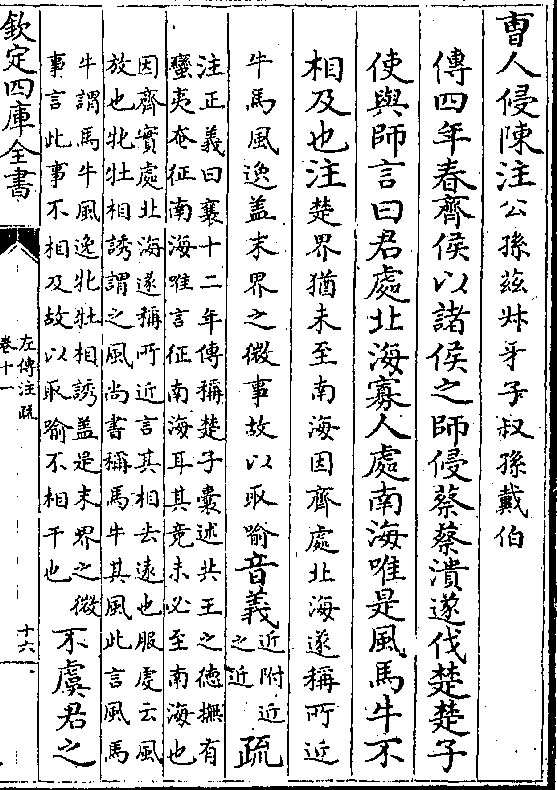 曹人侵陳注公孫茲叔牙子叔孫戴伯
傳四年春齊侯以諸侯之師侵蔡蔡潰遂伐楚楚子
使與師言曰君處北海寡人處南海唯是風馬牛不
相及也注楚界猶未至南海因齊處北海遂稱所近
牛馬風逸盖末界之微事故以取喻音義近附近
之近疏
注正義曰襄十二年傳稱楚子囊述共王之德撫有
蠻夷奄征南海唯言征南海耳其竟未必至南海也
因齊實處北海遂稱所近言其相去遠也服虔云風
放也牝牡相誘謂之風尚書稱馬牛其風此言風馬
牛謂馬牛風逸牝牡相誘盖是末界之微
事言此事不相及故以取喻不相干也不虞君之
欽定四庫全書
左傳注疏
卷十一
十六